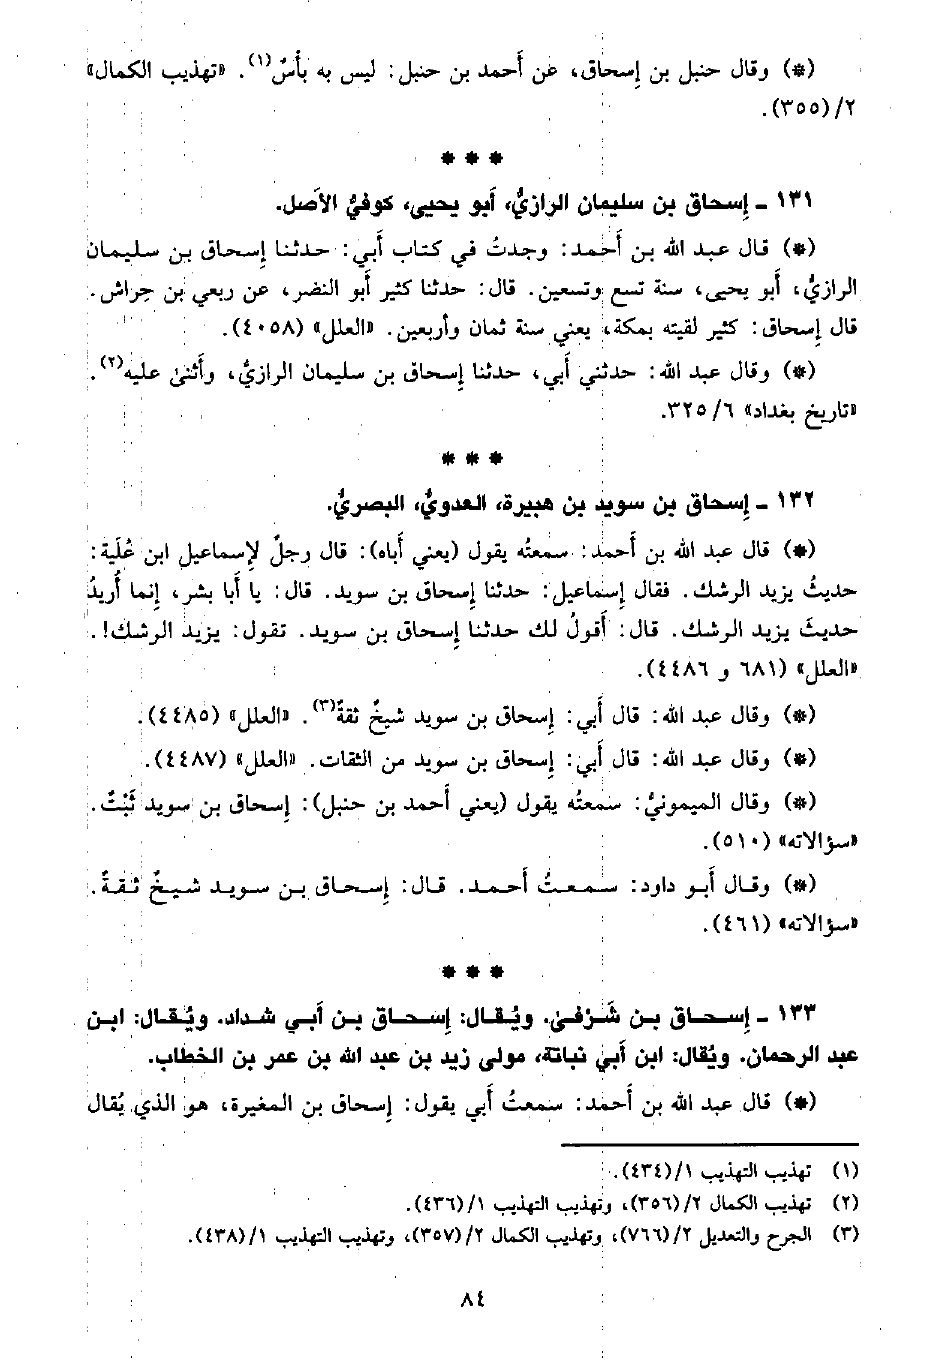 (*) وقال حنبل بن إسحاق، عن أحمد بن حنبل: ليس به بأسٌ(١). «تهذيب الكمال»
٢/(٣٥٥).
***
١٣١ ـ إسحاق بن سليمان الرازيُّ، أبو يحيى، كوفيُّ الأصل.
(*) قال عبد الله بن أحمد: وجدتُ في كتاب أبي: حدثنا إسحاق بن سليمان
الرازيُّ، أبو يحيى، سنة تسع وتسعين. قال: حدثنا كثير أبو النضر، عن ربعي بن حِراش.
قال إسحاق: كثير لقيته بمكة، يعني سنة ثمان وأربعين. «العلل» (٤٠٥٨).
(*) وقال عبد الله: حدثني أبي، حدثنا إسحاق بن سليمان الرازيُّ، وأثنىٰ عليه(٢).
«تاريخ بغداد» ٦/ ٣٢٥.
***
١٣٢ ـ إسحاق بن سويد بن هبيرة، العدويُّ، البصريُّ.
(*) قال عبد الله بن أحمد: سمعتُه يقول (يعني أباه): قال رجلٌ لإسماعيل ابن عُلَية:
حديثُ يزيد الرشك. فقال إسماعيل: حدثنا إسحاق بن سويد. قال: يا أبا بشر، إنما أُريدُ
حديثَ يزيد الرشك. قال: أقولُ لك حدثنا إسحاق بن سويد. تقول: يزيد الرشك!.
«العلل» (٦٨١ و ٤٤٨٦).
(*) وقال عبد الله: قال أبي: إسحاق بن سويد شيخٌ ثقةٌ(٣). «العلل» (٤٤٨٥).
(*) وقال عبد الله: قال أبي: إسحاق بن سويد من الثقات. «العلل» (٤٤٨٧).
(*) وقال الميمونيُّ: سمعتُه يقول (يعني أحمد بن حنبل): إسحاق بن سويد ثَبْتٌ.
«سؤالاته» (٥١٠).
(*) وقال أبو داود: سمعتُ أحمد. قال: إسحاق بن سويد شيخٌ ثقةٌ.
«سؤالاته» (٤٦١).
***
١٣٣ ـ إسحاق بن شَرْفىٰ. ويُقال: إسحاق بن أبي شداد. ويُقال: ابن
عبد الرحمان. ويُقال: ابن أبي نباتة، مولى زيد بن عبد الله بن عمر بن الخطاب.
(*) قال عبد الله بن أحمد: سمعتُ أبي يقول: إسحاق بن المغيرة، هو الذي يُقال
(١) تهذيب التهذيب ١/(٤٣٤).
(٢) تهذيب الكمال ٢/(٣٥٦)، وتهذيب التهذيب ١/(٤٣٦).
(٣) الجرح والتعديل ٢/(٧٦٦)، وتهذيب الكمال ٢/(٣٥٧)، وتهذيب التهذيب ١/(٤٣٨).
٨٤